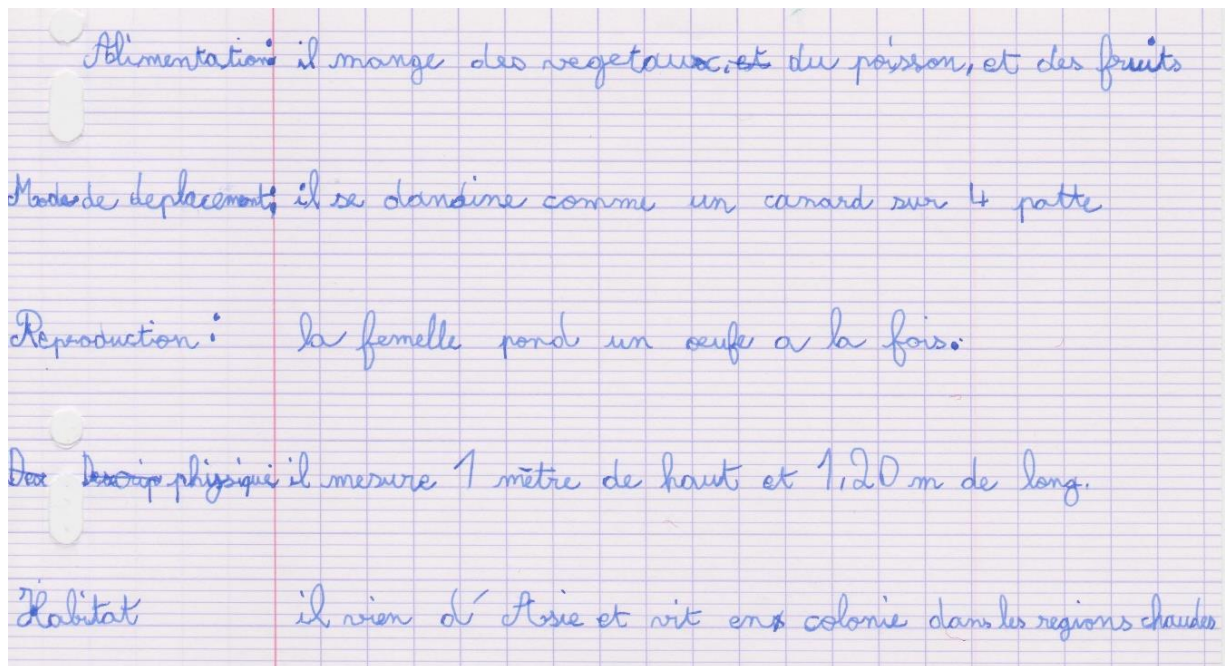 Alimentation: il mange des vegetaux, et du poisson, et des fruits
Mode de deplacement: il se dandine comme un canard sur 4 patte
Reproduction: la femelle pond un œufe a la fois.
phisique il mesure 1 mètre de haut et 1,20 m de long.
Habitat il vien d'Asie et vit en colonie dans les regions chaudes